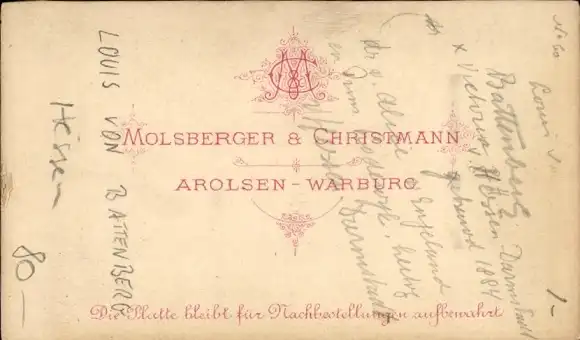 MOLSBERGER & CHRISTMANN
AROLSEN - WARBURG
Die Platte bleibt für Nachbestellungen aufbewahrt
LOUIS VON BATTENBERG
Hessen
80 —
No 60
Louis v.
Battenberg
x Victoria v. Hessen Darmstadt
geheiratet 1884
Alice
England
Darmstadt
1-